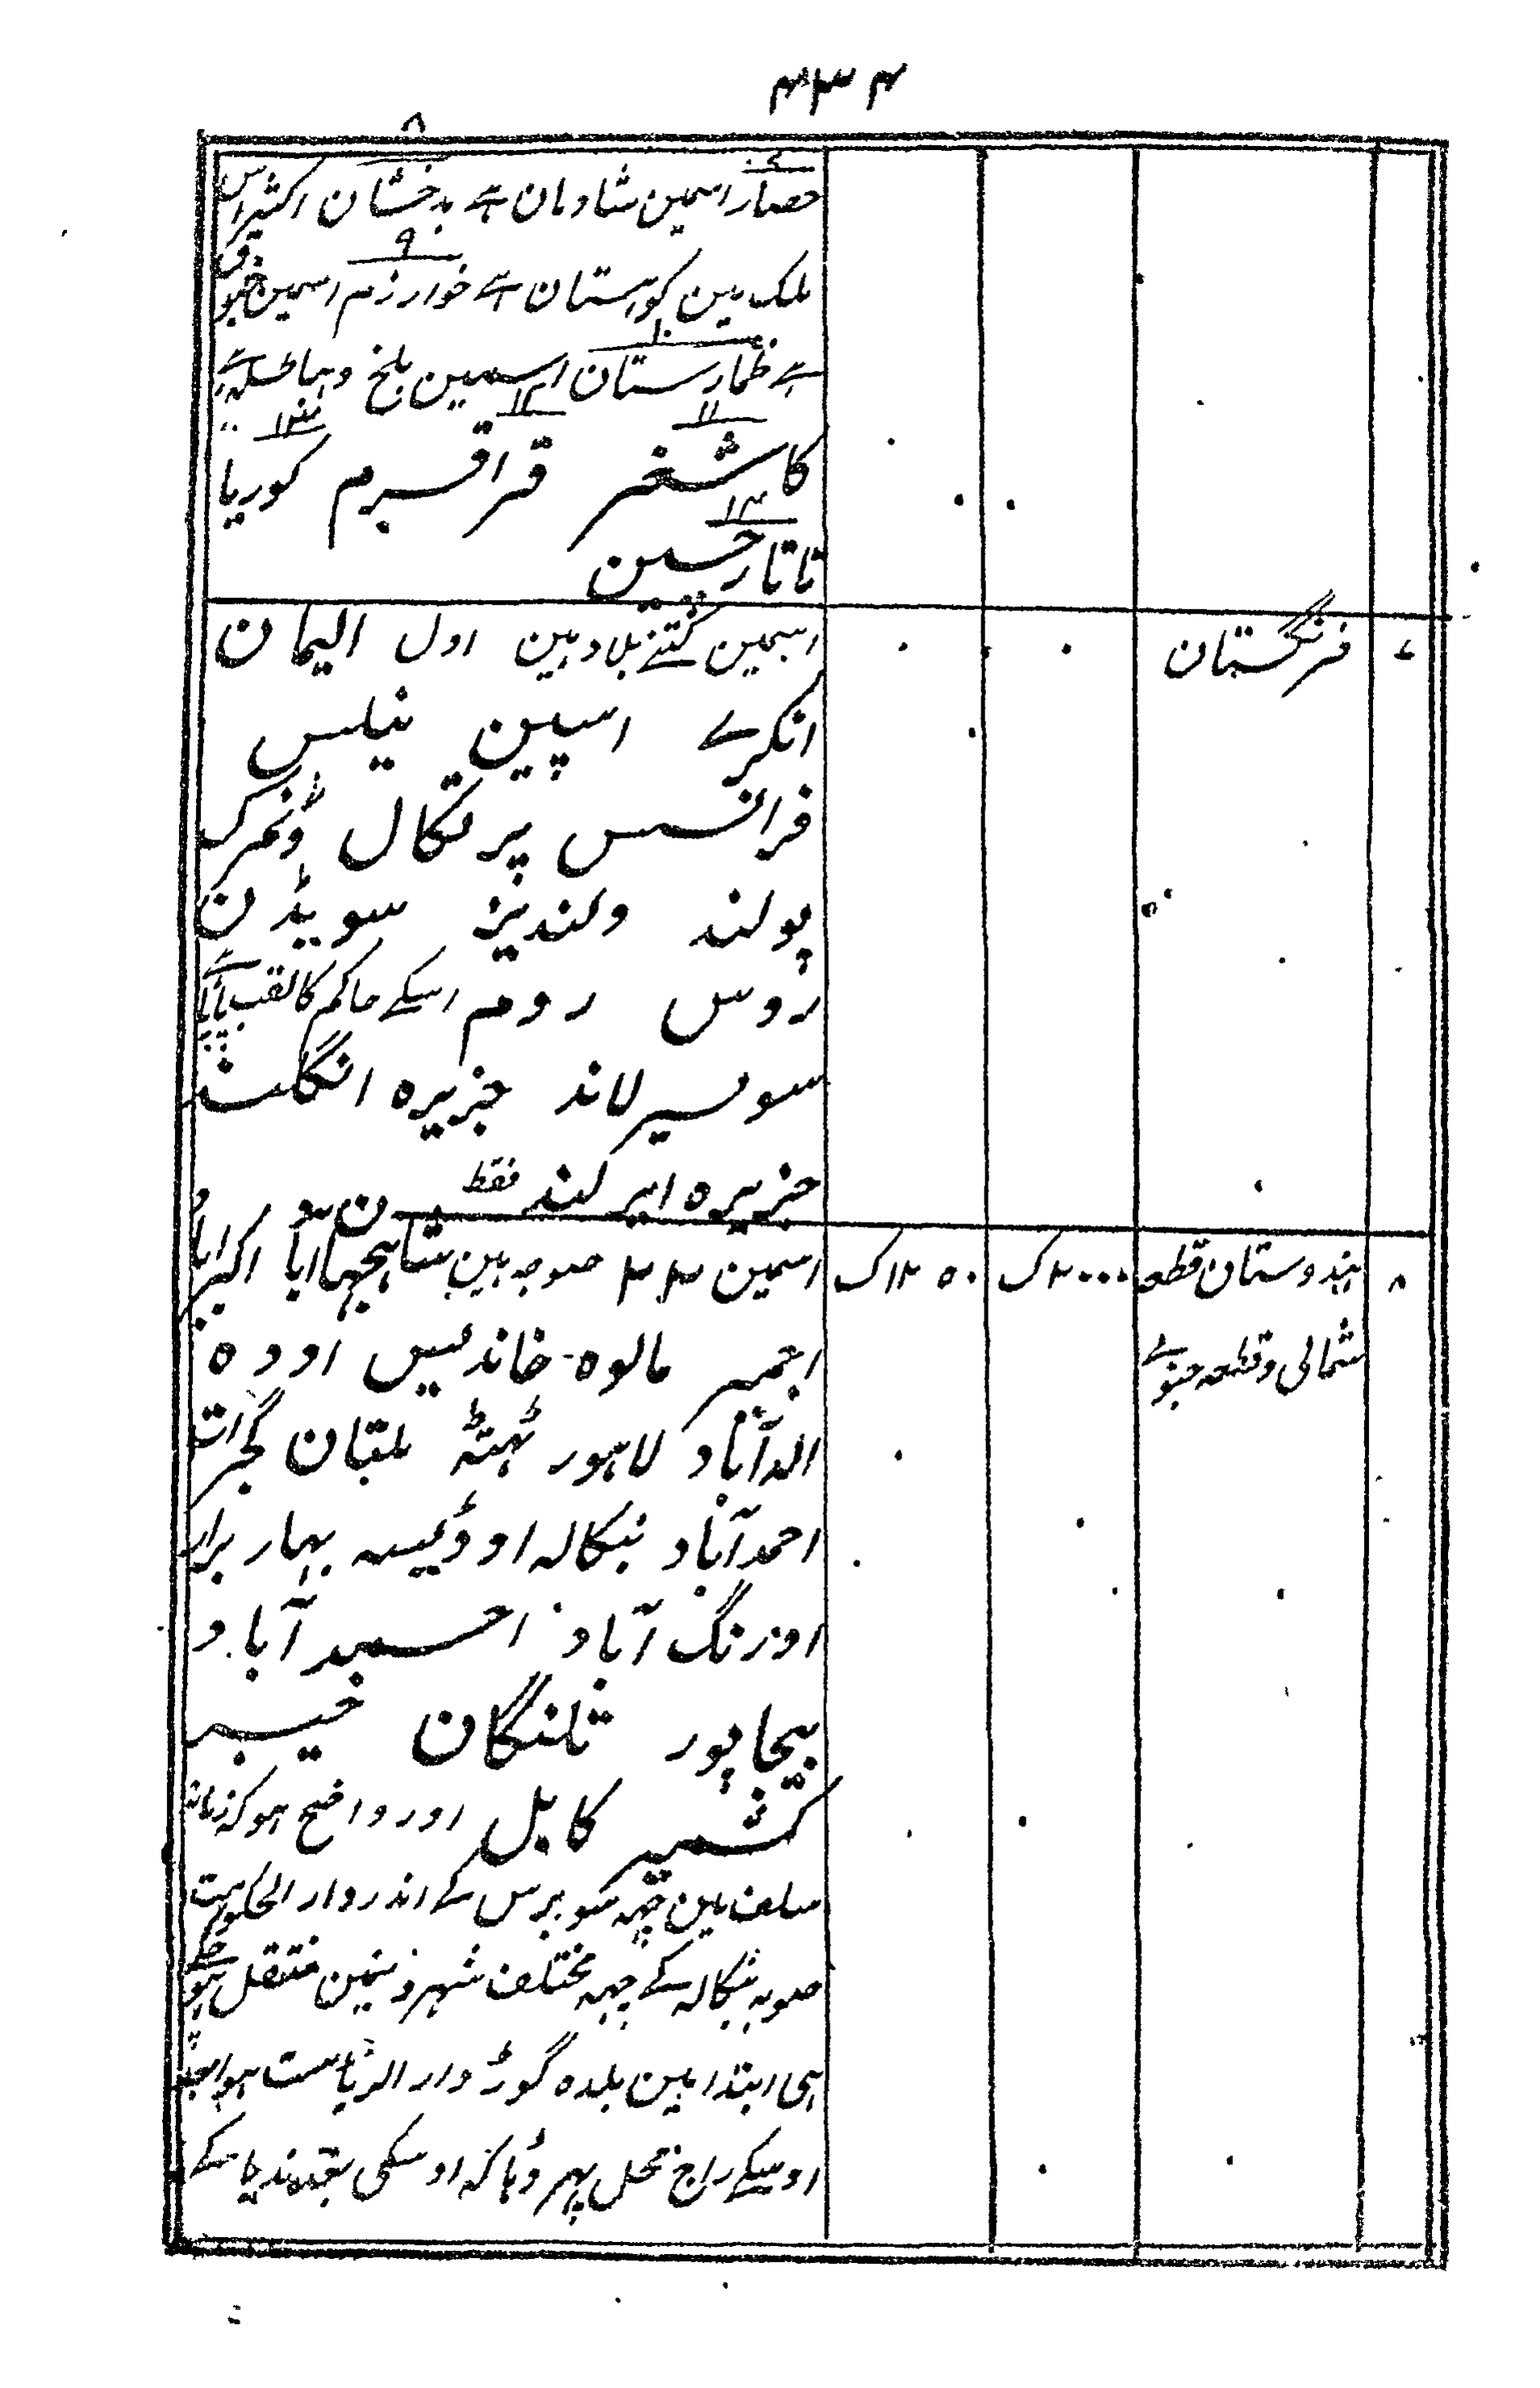 ۴۳۴
حصار اسمین شادمان ہے بدخشان اکثر اس
۸
۹
ملک مین کوہستان ہے خوارزم اسمین
۱۰
ہے طخارستان اسمین بلخ و ہیاطلہ ہے
۱۱ ۱۲ ۱۳
کاشغر قراقرم کوریا
۱۴
تاتار چین
۷ فرنگستان اسمین کتنے بلاد ہین اول الیمان
انکرے اسپین نیپلس
فرانسس پرتکال ڈنمرک
پولند ولندیز سویڈن
روس روم اسکے حاکم کا لقب پاپا ہے
سویسرلاند جزیرہ انگلند
جزیرہ ایرلند فقط
۸ ہندوستان قطعہ ۲۰۰۰ک ۱۲۵۰ک اسمین ۲۲ صوبہ ہین شاہجہان آباد اکبراباد
شمالی و قطعہ جنوبے اجمیر مالوہ خاندیس اودہ
الہ آباد لاہور ٹہٹہ ملتان گجرات
احمدآباد بنکالہ اوڈیسہ بہار برار
اورنگ آباد احمدآباد
بیجاپور تلنگان خیبر
کشمیر کابل اور واضح ہو کہ زمانہ
سلف مین چہہ سو برس کے اندر دار الحکومت
صوبہ بنکالہ کے چہہ مختلف شہرونمین منتقل ہو چکے
ہی ابتدا مین بلدہ گوڑ دار الریاست ہوا بعد
اوسکے راج محل پہر ڈہاکہ اوسکی بعد ندیا کے